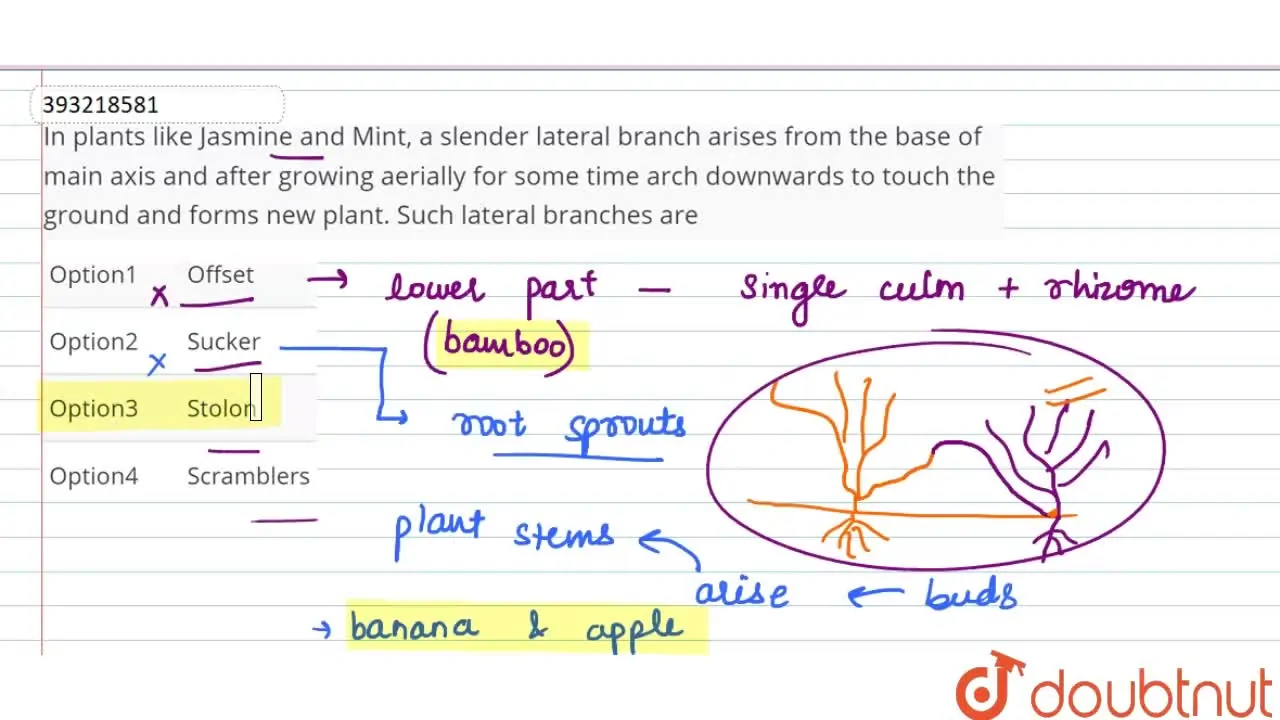 393218581
In plants like Jasmine and Mint, a slender lateral branch arises from the base of
main axis and after growing aerially for some time arch downwards to touch the
ground and forms new plant. Such lateral branches are
Option1 x Offset → lower part — single culm + rhizome
(bamboo)
Option2 x Sucker
Option3 Stolon
root sprouts
Option4 Scramblers
plant stems ← arise ← buds
→ banana & apple
doubtnut